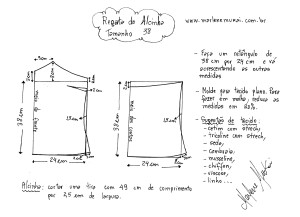 Regata de Alcinha
Tamanho 38
www.marlenemukai.com.br
- Faça um retângulo de
38 cm por 24 cm e vá
acrescentando as outras
medidas
- Molde para tecido plano. Para
fazer em malha, reduza as
medidas em 20%.
- Sugestões de tecido:
- cetim com strech,
- tricoline com strech,
- seda,
- cambraia,
- musseline,
- chiffon,
- viscose,
- linho...
38 cm
24 cm
38 cm
24 cm
Alcinha: cortar uma tira com 49 cm de comprimento
por 2,5 cm de largura.
Marlene Mukai